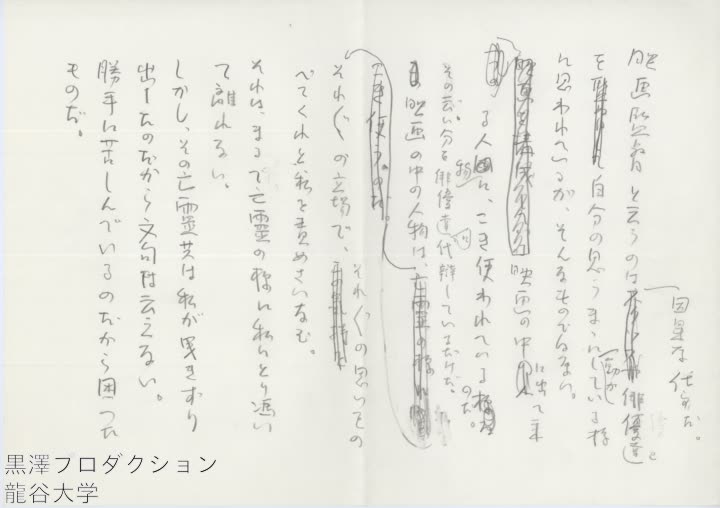 映画監督と云うのは因果な仕事だ。
俳優達を自分の思うまゝに動かしている様
に思われているが、そんなものではない。
映画の中に出て来
る人物に、こき使われているのだ。
その云い分を俳優達が代辯しているだけだ。
映画の中の人物は、
それ〲の立場で、それ〲の思いをの
べてくれと私を責めさいなむ。
それは、まるで亡霊の様に私にとり憑い
て離れない。
しかし、その亡霊共は私が曳きずり
出したのだから文句は云えない。
勝手に苦しんでいるのだから困った
ものだ。
黒澤プロダクション
龍谷大学